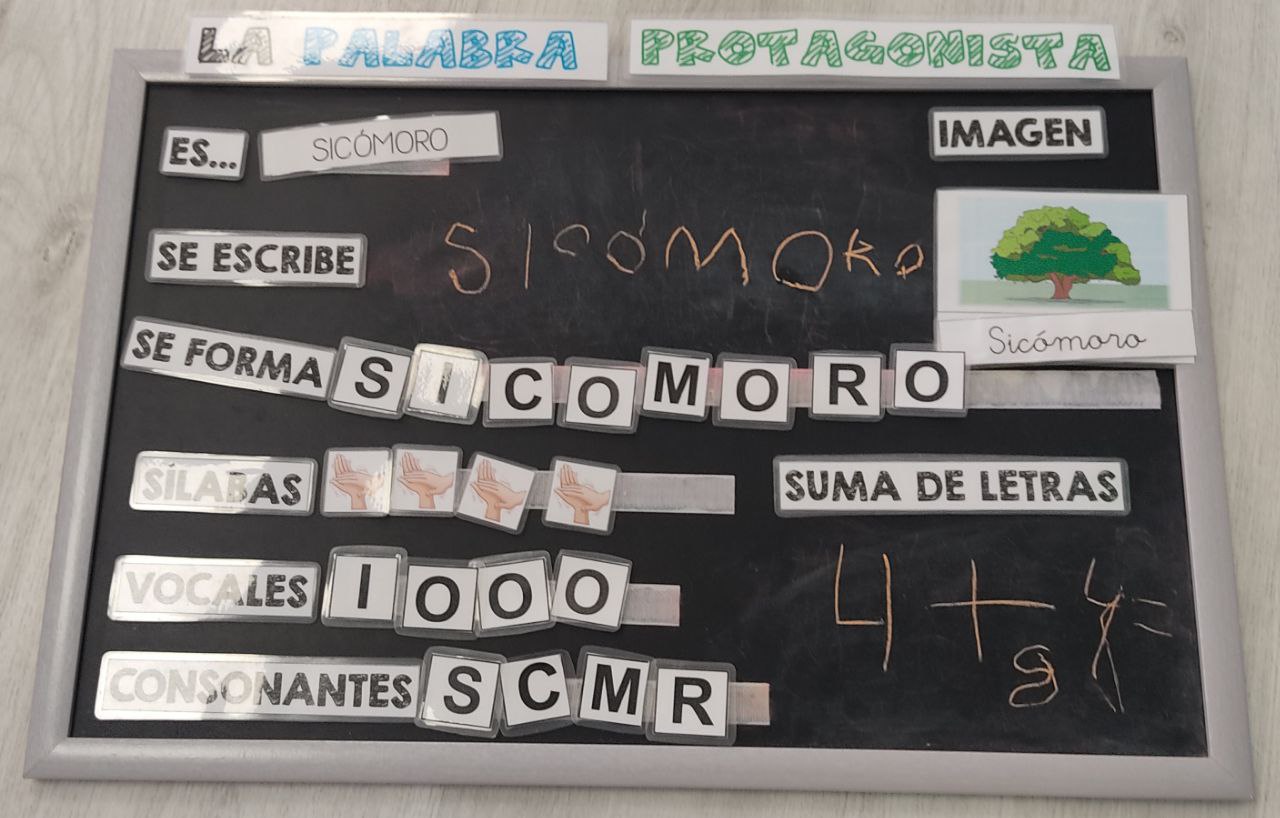 LA PALABRA PROTAGONISTA
ES... SICÓMORO
IMAGEN
SE ESCRIBE SICÓMORO
Sicómoro
SE FORMA S I C O M O R O
SÍLABAS
SUMA DE LETRAS
VOCALES I O O O
4 + 4 =
8
CONSONANTES S C M R